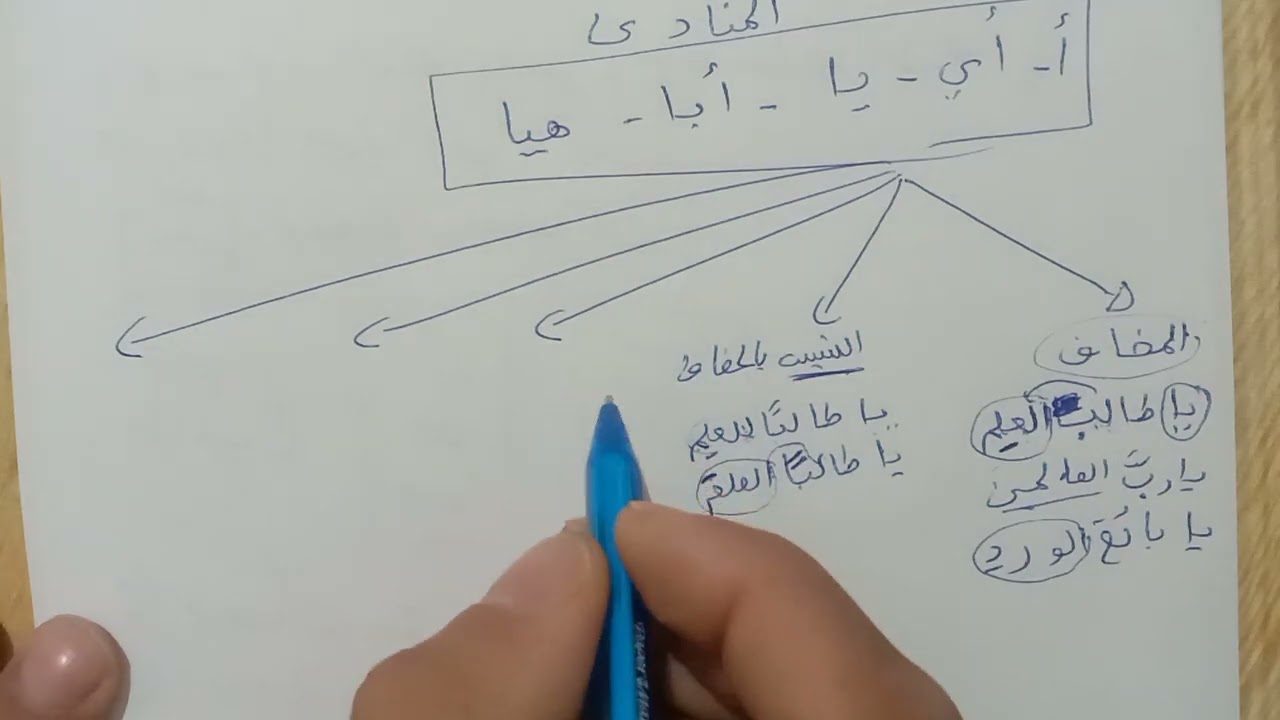 المنادى
أ - أي - يا - أبا - هيا
المضاف
يا طالب العلم
يا ربَّ العالمين
يا بائعَ الورد
الشبيه بالمضاف
يا طالبًا للعلم
يا طالبًا العلم